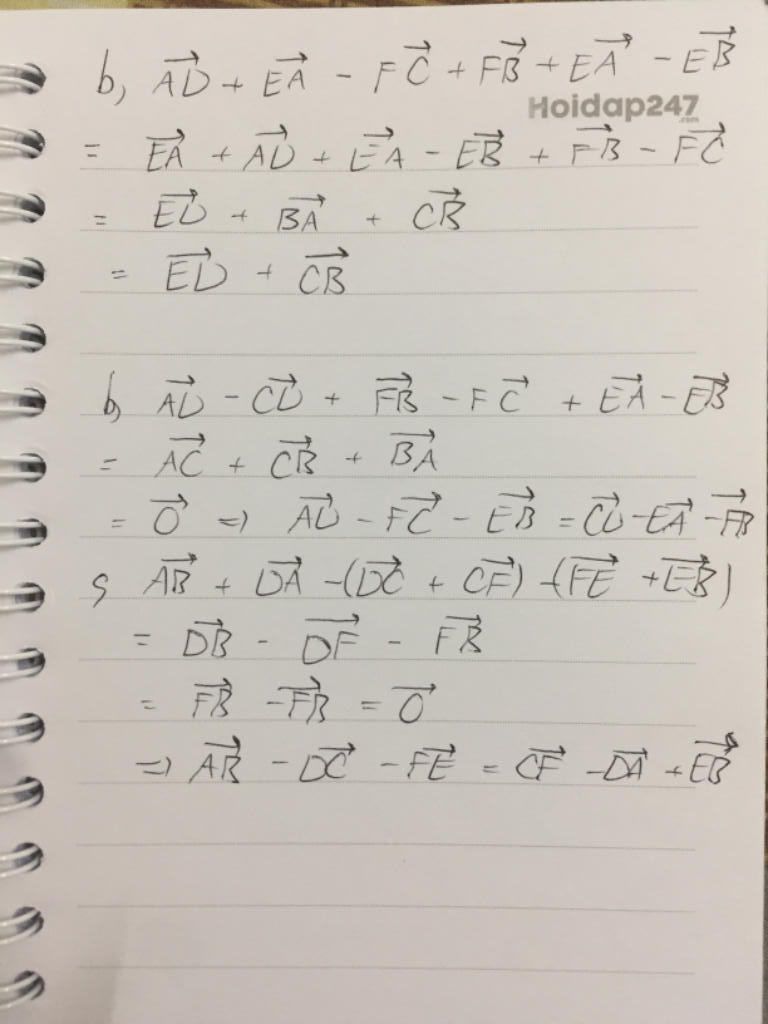 b, \overrightarrow{AD} + \overrightarrow{EA} - \overrightarrow{FC} + \overrightarrow{FB} + \overrightarrow{EA} - \overrightarrow{EB}
Hoidap247
.com
= \overrightarrow{EA} + \overrightarrow{AD} + \overrightarrow{EA} - \overrightarrow{EB} + \overrightarrow{FB} - \overrightarrow{FC}
= \overrightarrow{ED} + \overrightarrow{BA} + \overrightarrow{CB}
= \overrightarrow{ED} + \overrightarrow{CB}
b, \overrightarrow{AD} - \overrightarrow{CD} + \overrightarrow{FB} - \overrightarrow{FC} + \overrightarrow{EA} - \overrightarrow{EB}
= \overrightarrow{AC} + \overrightarrow{CB} + \overrightarrow{BA}
= \overrightarrow{O} => \overrightarrow{AD} - \overrightarrow{FC} - \overrightarrow{EB} = \overrightarrow{CD} - \overrightarrow{EA} - \overrightarrow{FB}
c, \overrightarrow{AB} + \overrightarrow{DA} - (\overrightarrow{DC} + \overrightarrow{CF}) - (\overrightarrow{FE} + \overrightarrow{EB})
= \overrightarrow{DB} - \overrightarrow{DF} - \overrightarrow{FB}
= \overrightarrow{FB} - \overrightarrow{FB} = \overrightarrow{O}
=> \overrightarrow{AB} - \overrightarrow{DC} - \overrightarrow{FE} = \overrightarrow{CF} - \overrightarrow{DA} + \overrightarrow{EB}